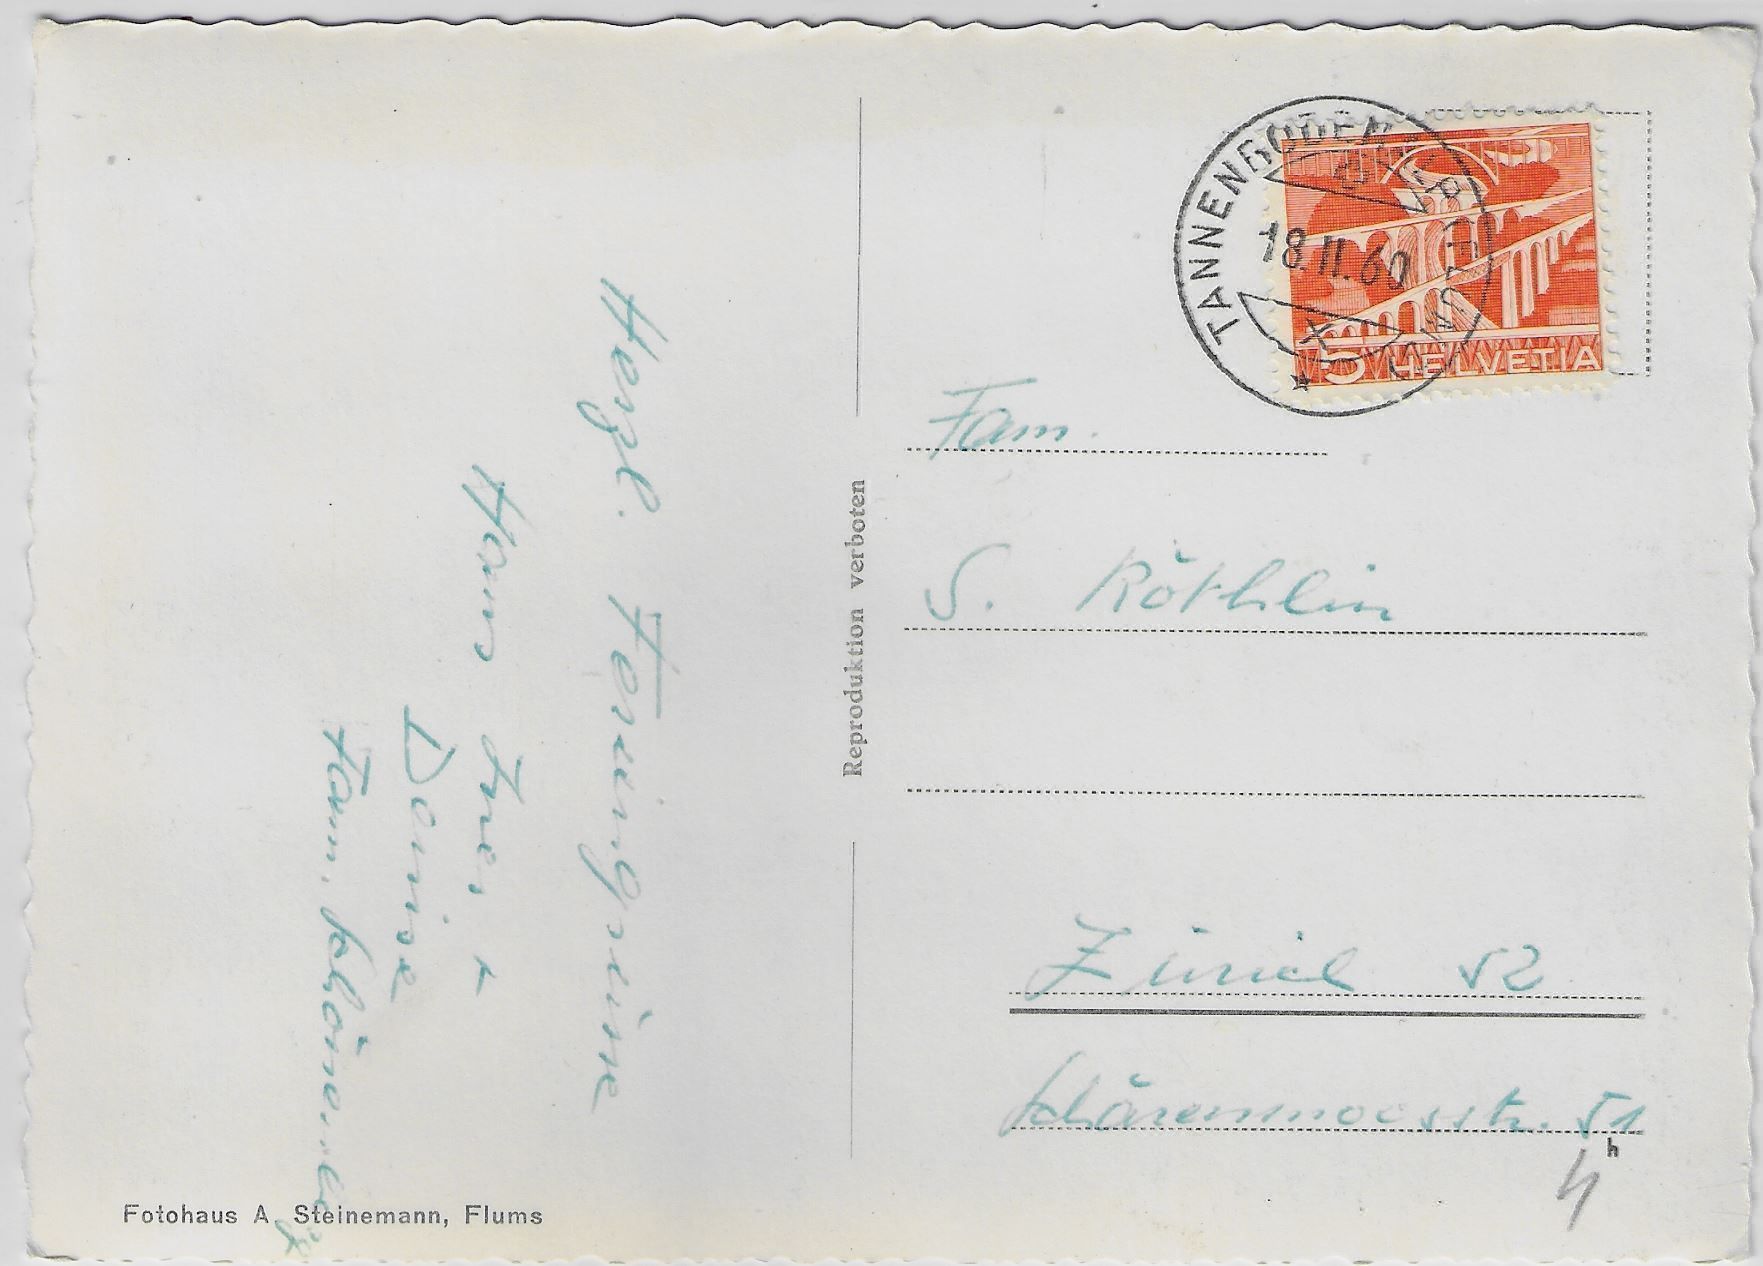 Herzl. Feriengrüsse
Hans Iren +
Denise
Fam.
TANNENBODEN
18.II.60
5 HELVETIA
Fam.
S. Röthlin
Reproduktion verboten
Zürich 52
Schärenmoosstr. 51
h
Fotohaus A. Steinemann, Flums